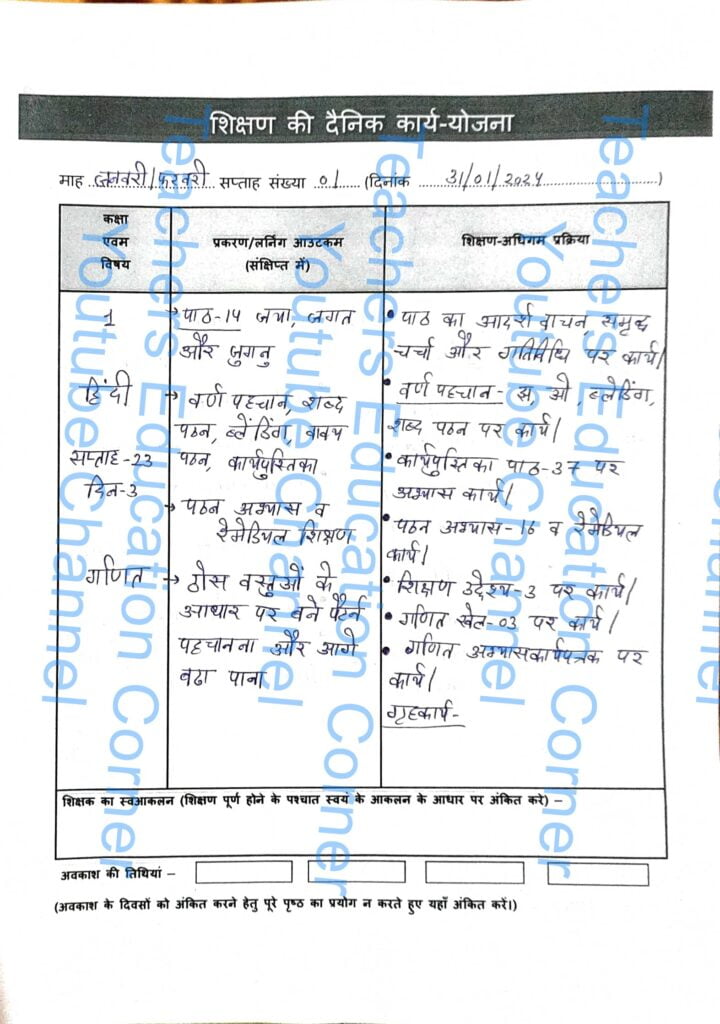 शिक्षण की दैनिक कार्य-योजना
माह जनवरी/फरवरी सप्ताह संख्या 01 (दिनांक 31/01/2024)
कक्षा एवम विषय
प्रकरण/लर्निंग आउटकम (संक्षिप्त में)
शिक्षण-अधिगम प्रक्रिया
1
हिंदी
सप्ताह-23
दिन-3
गणित
→ पाठ-14 जया, जगत
और जुगनु
→ वर्ण पहचान, शब्द
पठन, ब्लेंडिंग, वाक्य
पठन, कार्यपुस्तिका
→ पठन अभ्यास व
रेमेडियल शिक्षण
→ ठोस वस्तुओं के
आधार पर बने पैटर्न
पहचानना और आगे
बढा पाना
• पाठ का आदर्श वाचन, समृद्ध
चर्चा और गतिविधि पर कार्य।
• वर्ण पहचान- झ, ओ, ब्लेडिंग,
शब्द पठन पर कार्य।
• कार्यपुस्तिका पाठ-37 पर
अभ्यास कार्य।
• पठन अभ्यास-16 व रेमैडियल
कार्य।
• शिक्षण उद्देश्य-3 पर कार्य।
• गणित खेल-03 पर कार्य।
• गणित अभ्यासकार्यपत्रक पर
कार्य।
गृहकार्य-
शिक्षक का स्वआकलन (शिक्षण पूर्ण होने के पश्चात स्वयं के आकलन के आधार पर अंकित करे) –
अवकाश की तिथियां –
(अवकाश के दिवसों को अंकित करने हेतु पूरे पृष्ठ का प्रयोग न करते हुए यहाँ अंकित करें।)
Teachers Education Corner
Youtube Channel
Teachers Education Corner
Youtube Channel
Teachers Education Corner
Youtube Channel